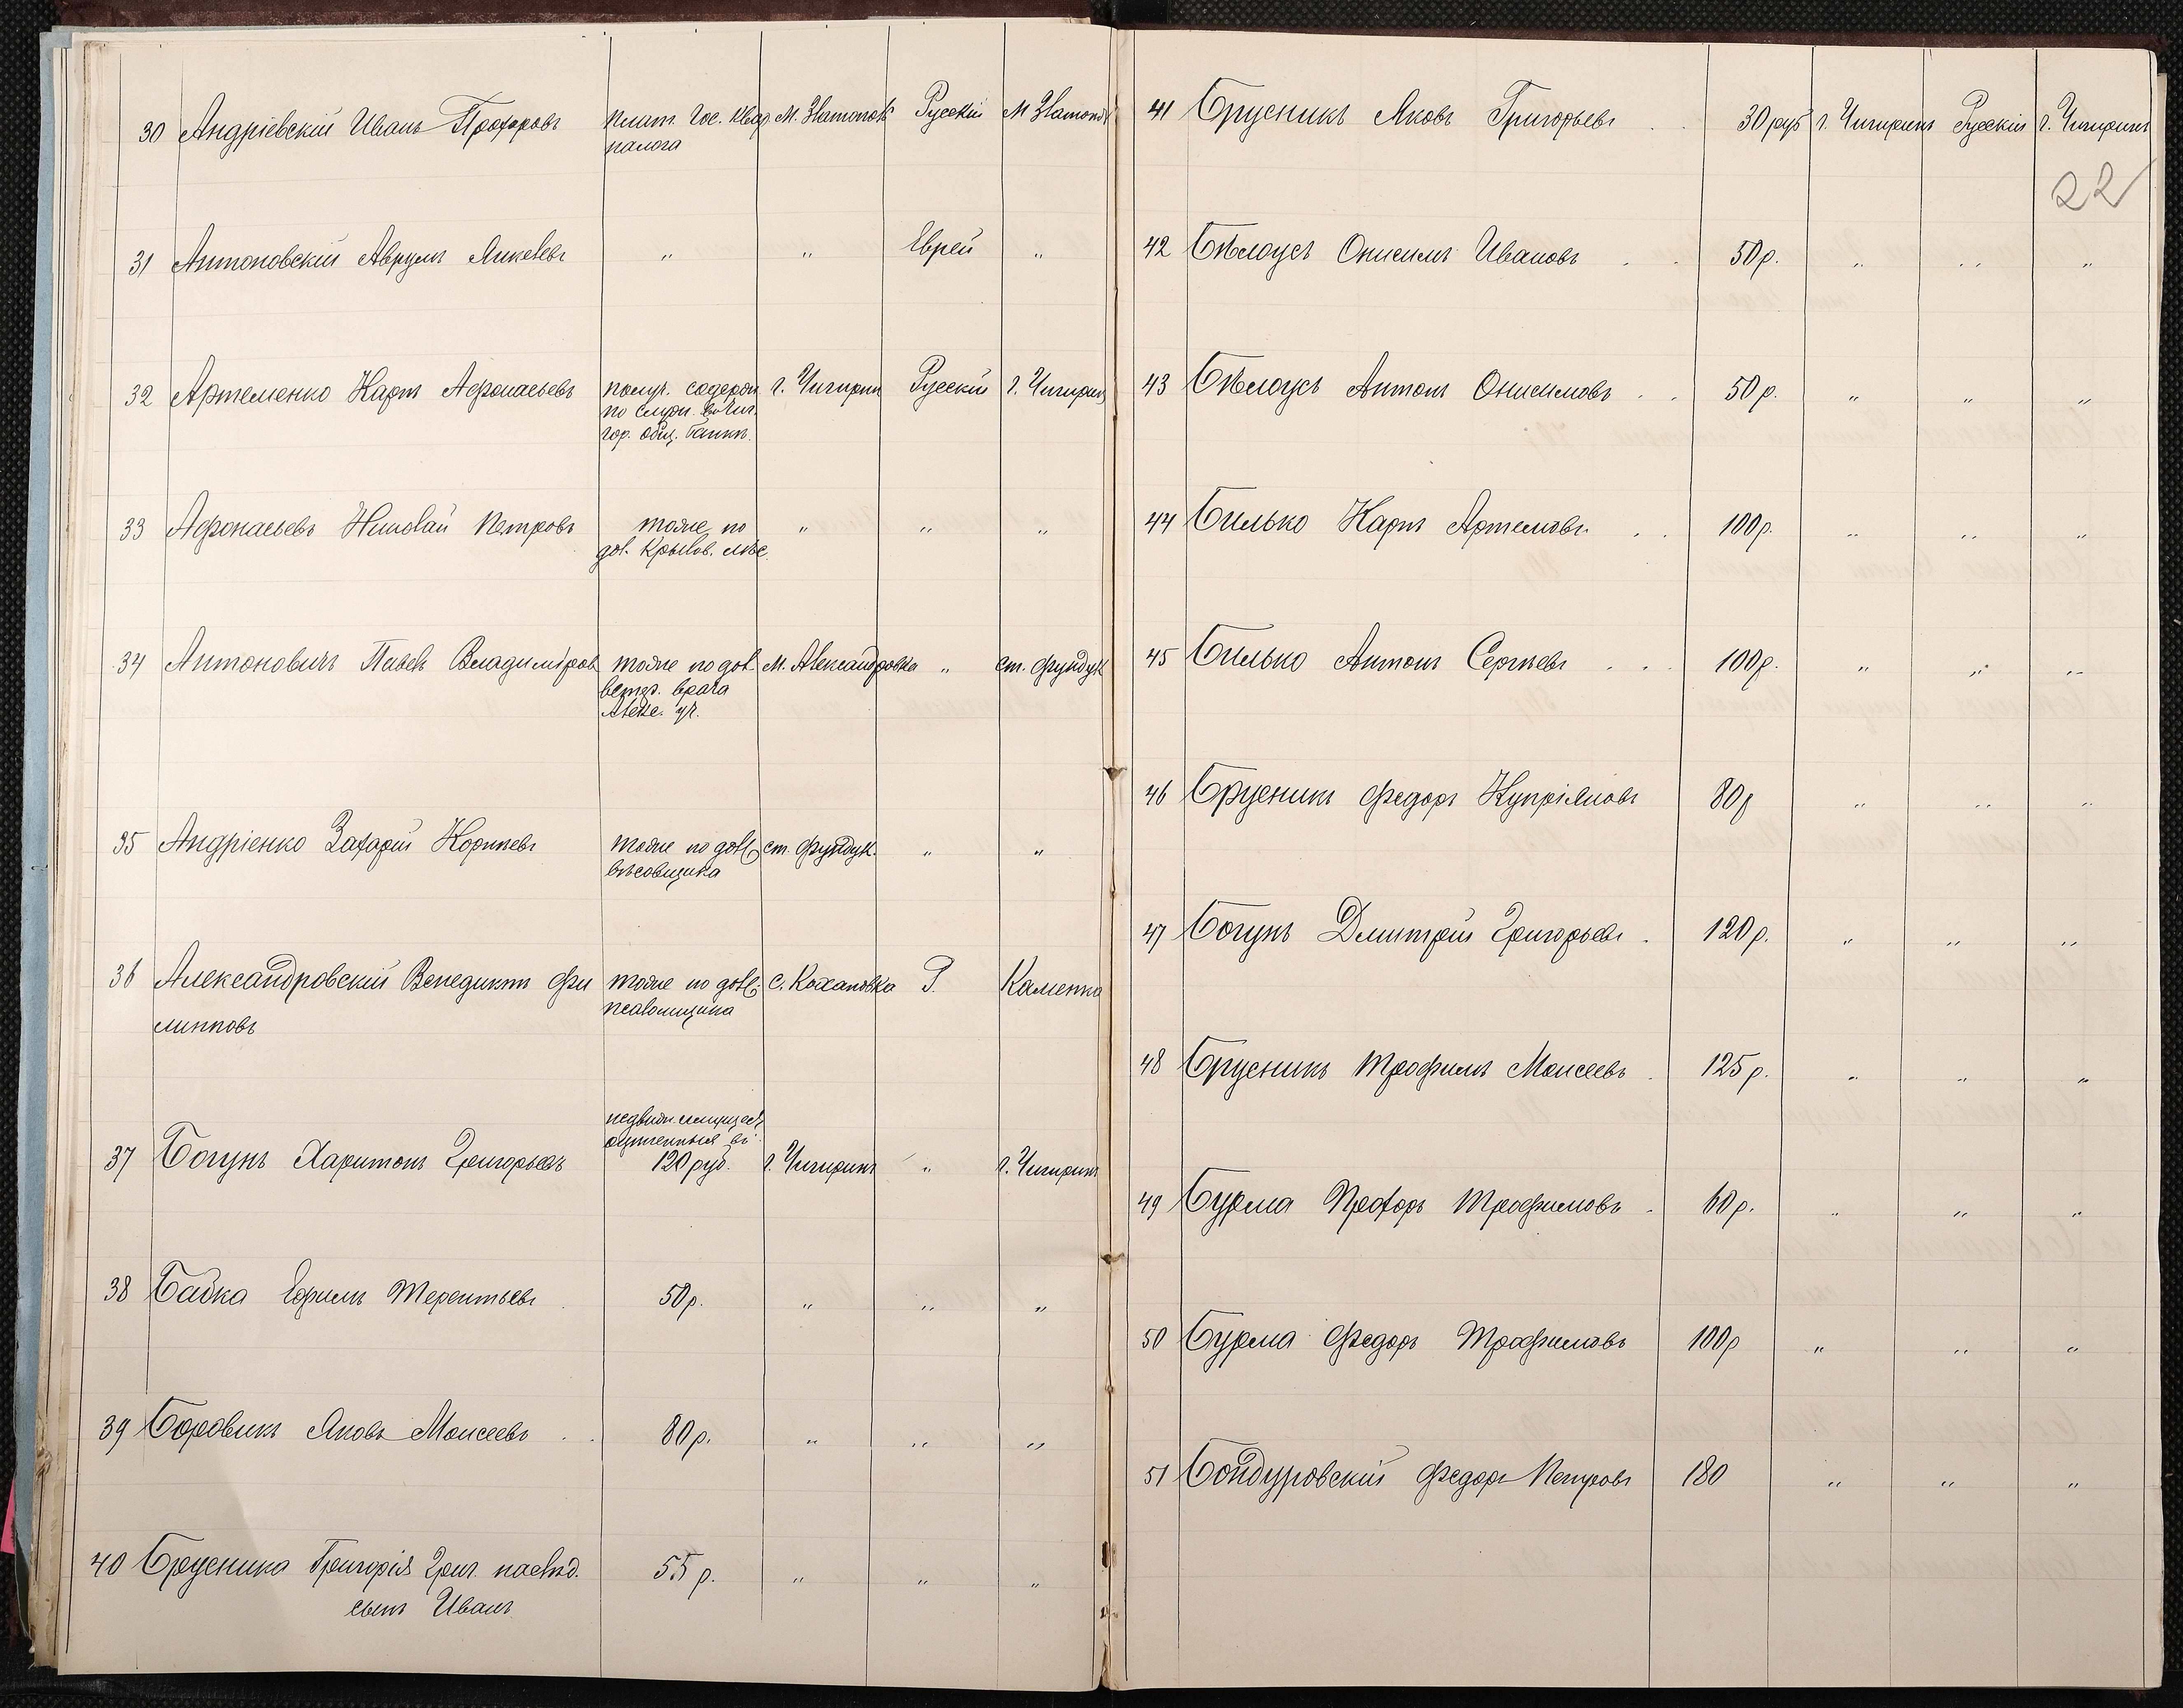 30 Андріевскій Иванъ Прохоровъ плат. Гос. Квар. М. Златополь Русскій М Златополь
налога
31 Антоновскій Аврумъ Янкелевъ " " Еврей "
32 Артеменко Карпъ Афонасьевъ получ. содерж. г. Чигирин Русскій г. Чигирин
по служ. въ Чиг.
гор. общ. банкѣ.
33 Афонасьевъ Николай Петровъ тоже по " " "
дол. Крылов. лѣс.
34 Антоновичъ Павелъ Владиміров тоже по дол. М. Александровка " ст. Фундук
ветер. врача
Алекс. уч.
35 Андріенко Захарій Корнѣевъ тоже по долж. ст. Фундук. " "
вѣсовщика
36 Александровскій Венедиктъ Фи тоже по долж. с. Кохановка Р. Каменка
липповъ псаломщика
37 Богунъ Харитонъ Григорьевъ недвиж. имущест.
оцѣненныя въ
120 руб. г. Чигиринъ " г. Чигиринъ
38 Бабка Ефимъ Терентьевъ 50 р. " " "
39 Боровикъ Яковъ Моисеевъ 80 р. " " "
40 Брусника Григорія Григ. наслѣд. 55 р. " " "
сынъ Иванъ
41 Брусникъ Яковъ Григорьевъ 30 руб г. Чигиринъ Русскій г. Чигиринъ
22
42 Бѣлоусъ Онисимъ Ивановъ 50 р. " " "
43 Бѣлоусъ Антонъ Онисимовъ 50 р. " " "
44 Билько Карпъ Артемовъ 100 р. " " "
45 Билько Антонъ Сергѣевъ 100 р. " " "
46 Брусникъ Федоръ Купріяновъ 80 р " " "
47 Богунъ Дмитрій Григорьевъ 120 р. " " "
48 Брусникъ Трофимъ Моисеевъ 125 р. " " "
49 Бурма Прохоръ Трофимовъ 60 р. " " "
50 Бурма Федоръ Трофимовъ 100 р " " "
51 Бондуровскій Федоръ Петровъ 180 " " "